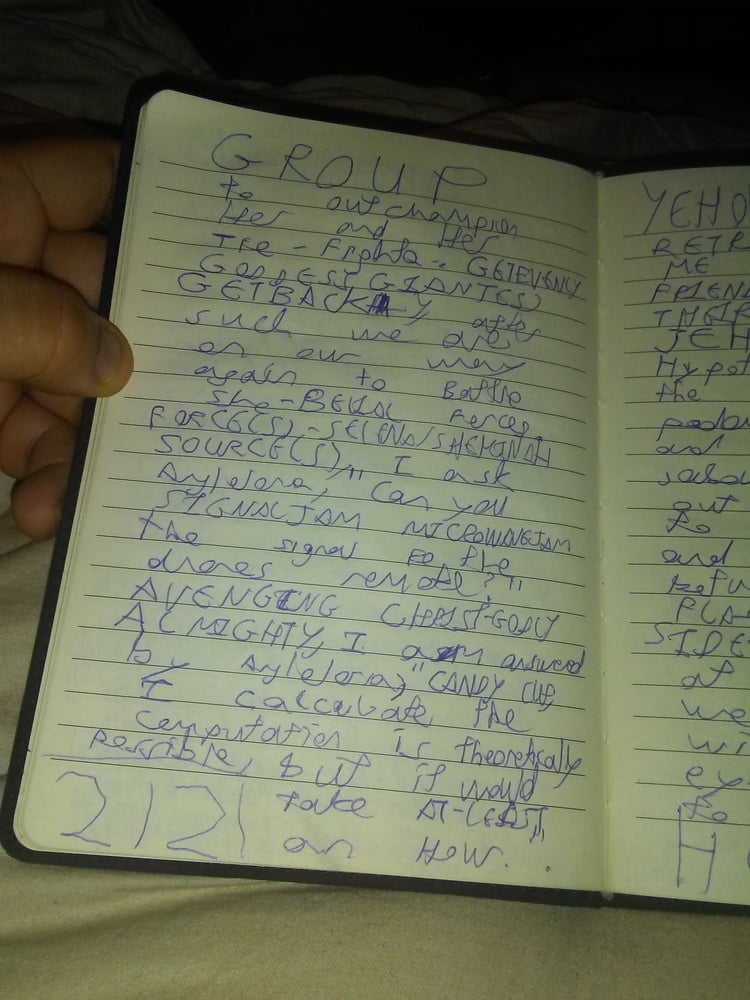 GROUP
to outchampion
Her and Her
THE-Fights: GETEVENLY
GODDESS GIANT(ES)
GETBACKLY, after
such we are
on our way
again to Battle
She-BELIAL Forces
FORCE(S)-SELENA/SHEKINAH
SOURCE(S), I ask
"Can you
SIGNALJAM MICROWAVEJAM
the signal to the
drones remote?"
AVENGING CHRIST-GODLY
ALMIGHTY, I am answered
by "CANDY CUP,
I calculate the
computation is theoretically
possible, but it would
take AT-LEAST
an HOUR.
2121
YEHO
RETR
ME
FRIEND
THEIR
JEH
Hypot
the
and
sabou
out
to
and
refu
PLA
SIDE
at
we
wi
ex
to
H